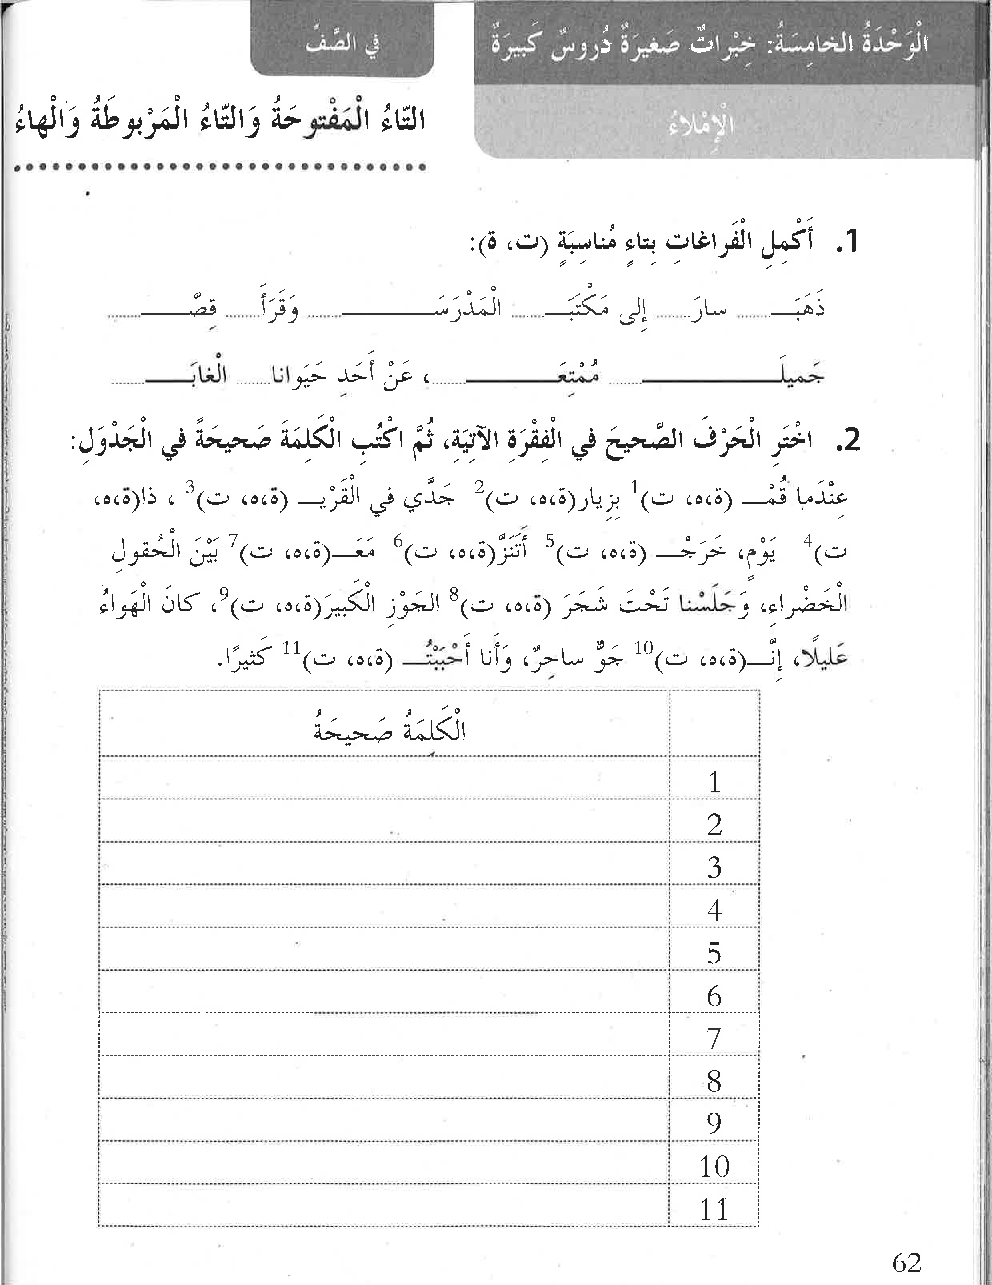 الْوَحْدَةُ الخامِسَةُ: خِبْراتٌ صَغيرَةٌ دُروسٌ كَبيرَةٌ
في الصَّفِّ
الْإِمْلاءُ
التّاءُ الْمَفْتوحَةُ وَالتّاءُ الْمَرْبوطَةُ وَالْهاءُ
1. أَكْمِلِ الْفَراغاتِ بِتاءٍ مُناسِبَةٍ (ت، ة):
ذَهَبَـ........ سارَ........ إِلى مَكْتَبَـ........ الْمَدْرَسَـ........ وَقَرَأَ........ قِصَّـ........
جَميلَـ........ مُمْتِعَـ........، عَنْ أَحَدِ حَيَوانا........ الْغابَـ........
2. اخْتَرِ الْحَرْفَ الصَّحيحَ في الْفِقْرَةِ الآتِيَةِ، ثُمَّ اكْتُبِ الْكَلِمَةَ صَحيحَةً في الْجَدْوَلِ:
عِنْدَما قُمْـ (ة،ه، ت)1 بِزِيار(ة،ه، ت)2 جَدّي في الْقَرْيَـ (ة،ه، ت)3 ، ذا(ة،ه،
ت)4 يَوْمٍ، خَرَجْـ (ة،ه، ت)5 أَتَنَزَّ(ة،ه، ت)6 مَعَـ(ة،ه، ت)7 بَيْنَ الْحُقولِ
الْخَضْراءِ، وَجَلَسْنا تَحْتَ شَجَرَ (ة،ه، ت)8 الجَوْزِ الْكَبيرَ(ة،ه، ت)9، كانَ الْهَواءُ
عَليلًا، إِنَّـ(ة،ه، ت)10 جَوٌّ ساحِرٌ، وَأَنا أَحْبَبْتُـ (ة،ه، ت)11 كَثيرًا.
الْكَلِمَةُ صَحيحَةُ
1
2
3
4
5
6
7
8
9
10
11
62